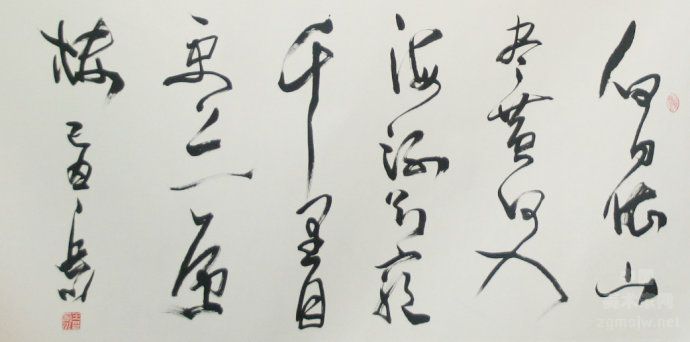 白日依山
尽黄河入
海流欲穷
千里目
更上一层
楼 己丑 岳
zgmsjw.net